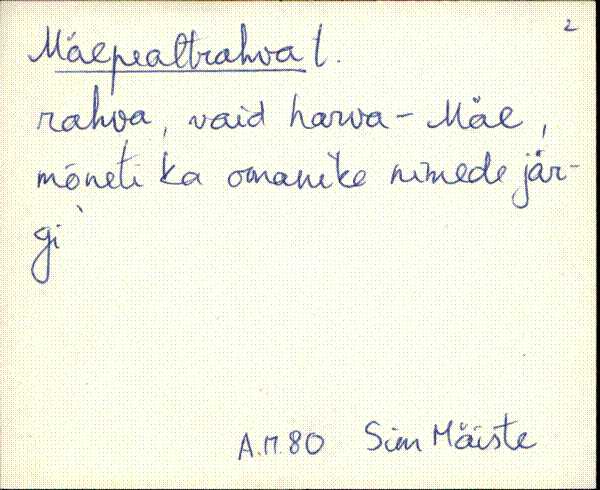 2
Mäepealtrahva t.
rahva, vaid harva - Mäe,
mõneti ka omanike nimede jär-
gi
A.M.80 Siim Mäiste